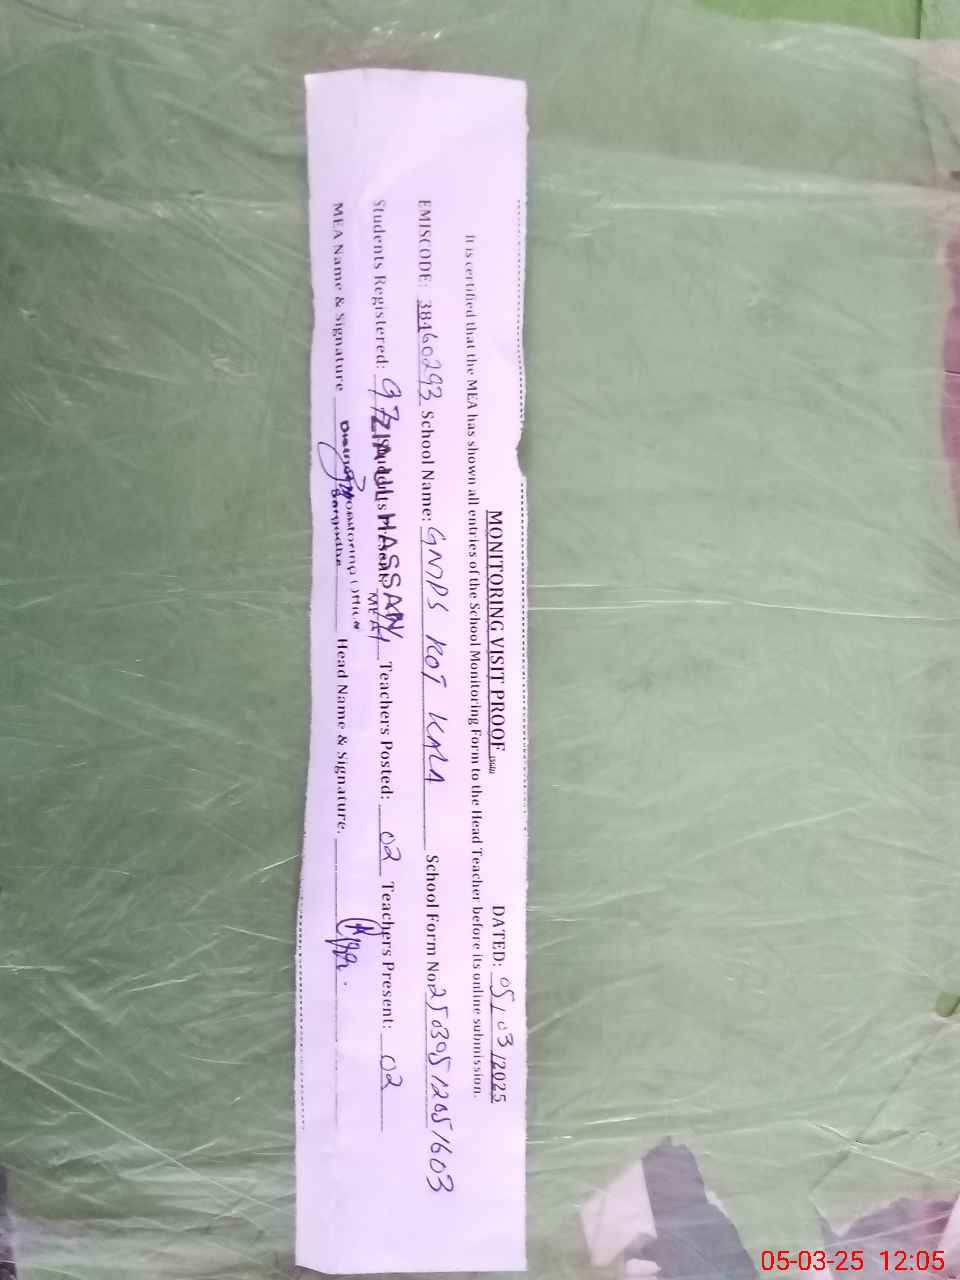 MONITORING VISIT PROOF DATED: 05/03/2025
It is certified that the MEA has shown all entries of the School Monitoring Form to the Head Teacher before its online submission.
EMISCODE: 38460293 School Name: GMPS KOT KALA School Form No: 25030512051603
Students Registered: 97 Students Present: Teachers Posted: 02 Teachers Present: 02
ZIA UL HASSAN
MEA
MEA Name & Signature Head Name & Signature.
Monitoring Officer
Sargodha
05-03-25 12:05